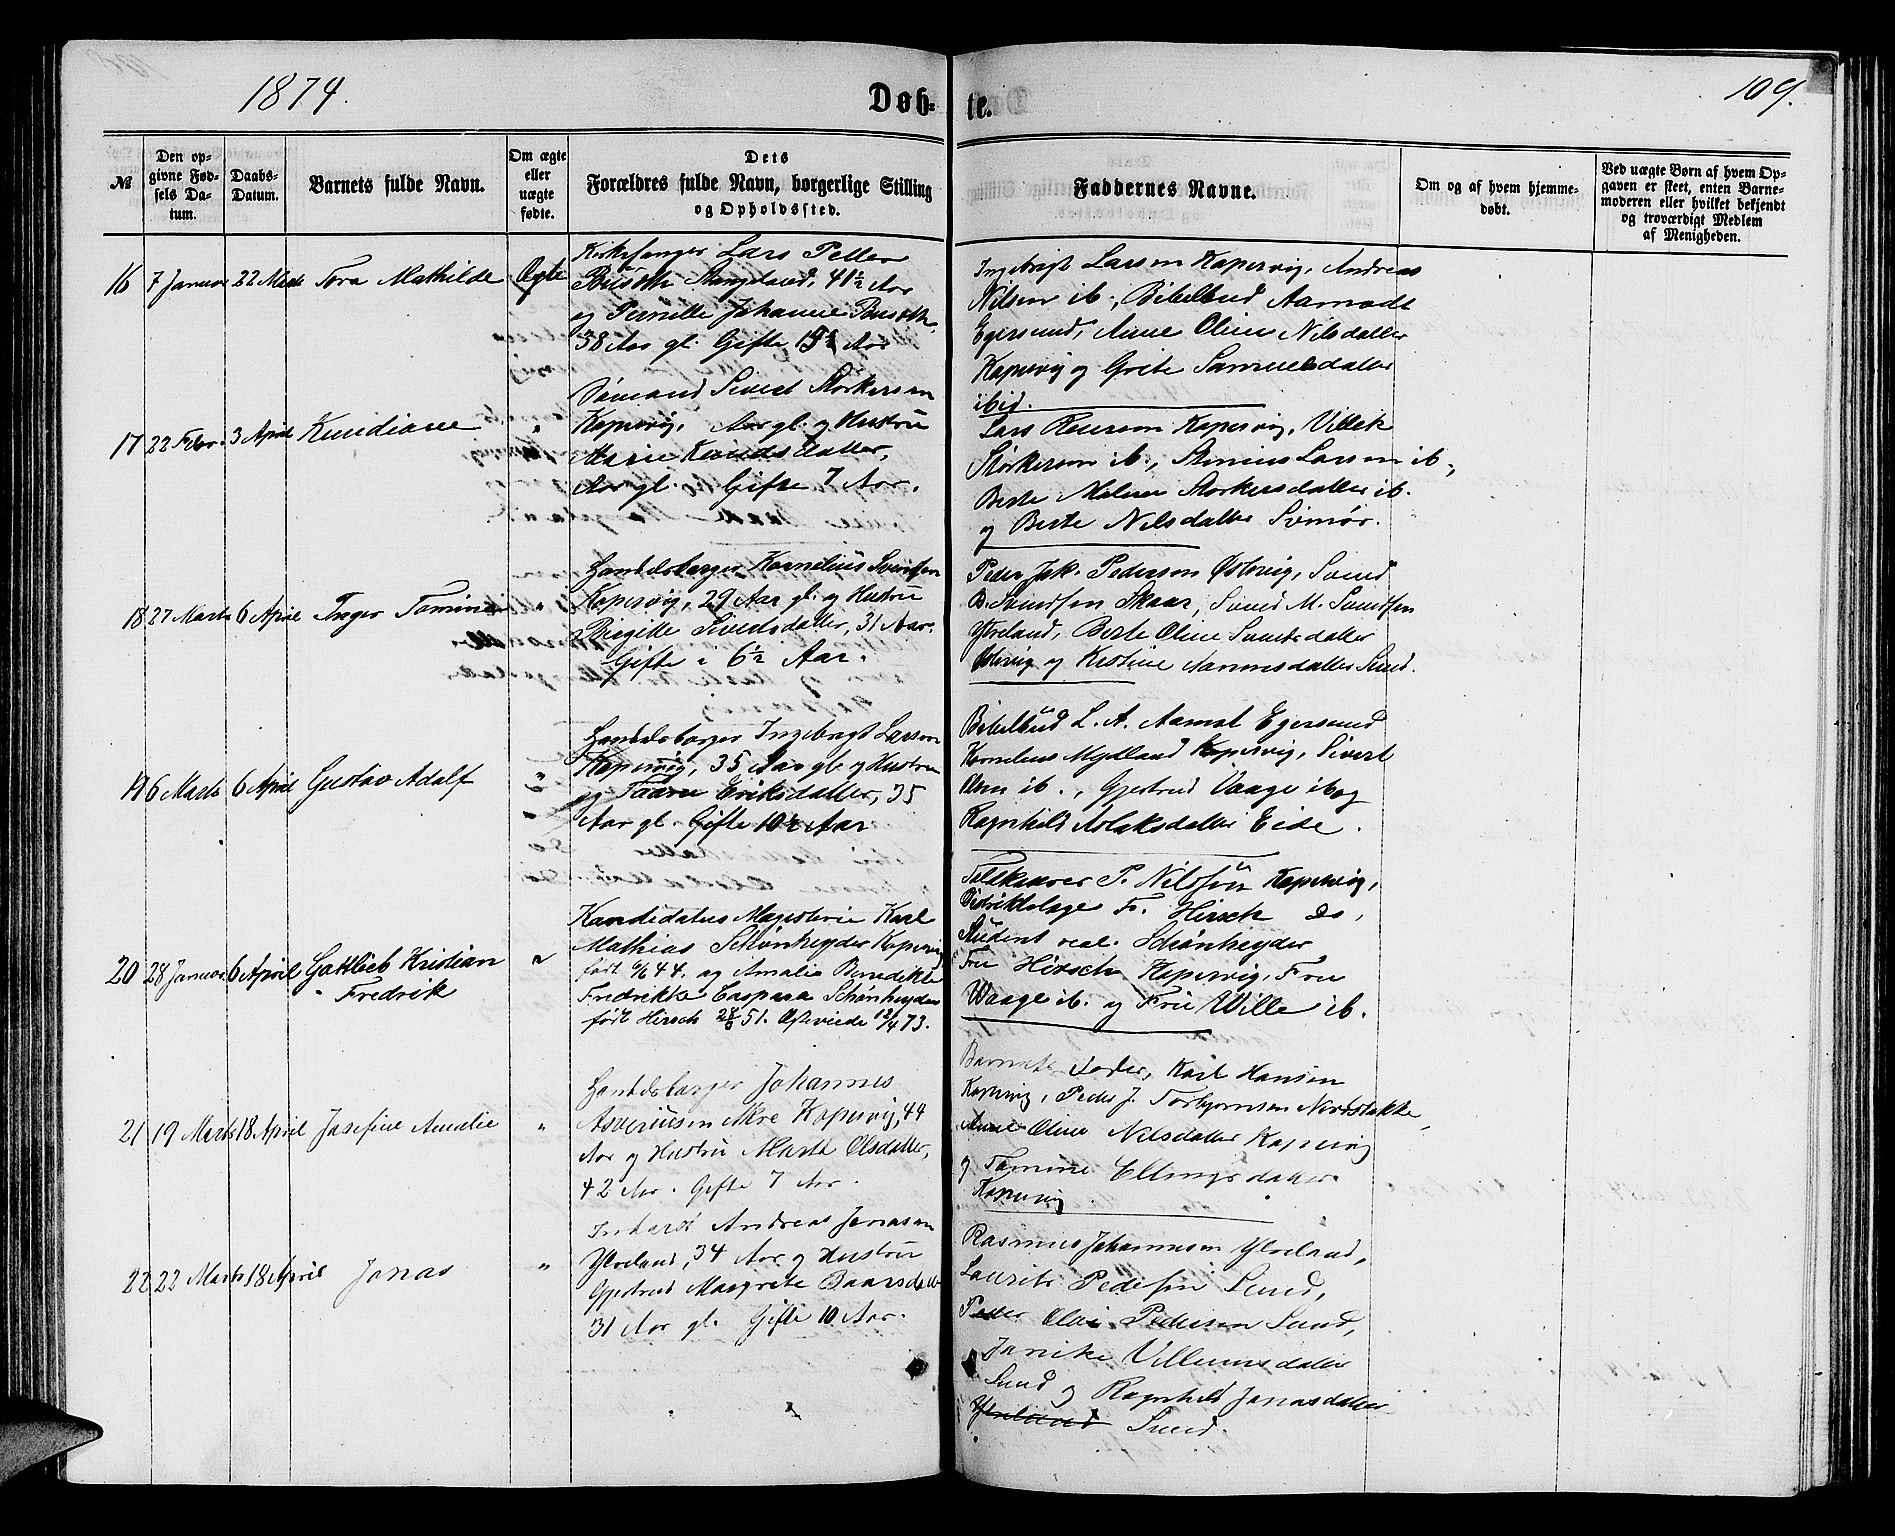 1874.
Døb-
te.
109.
№
Den op-
givne Fød-
sels Da-
tum.
Daabs-
Datum.
Barnets fulde Navn.
Om ægte
eller
uægte
fødte.
Dets
Forældres fulde Navn, borgerlige Stilling
og Opholdssted.
Faddernes Navne.
Om og af hvem hjemme-
døbt.
Ved uægte Børn af hvem Op-
gaven er skeet, enten Barne-
moderen eller hvilket bekjendt
og troværdigt Medlem
af Menigheden.
16 7 Januar 22 Marts Tora Mathilde Ægte
Kirkesanger Lars Petter
Stangeland, 41½ Aar
og Pernille Johanne
38 Aar gl. Gifte Aar
Ingebrigt Larsen Kopervig, Andreas
Nilsen ib., Bibelbud Aamodt
Egersund, Anne Oline Nilsdatter
Kopervig og Grete Samuelsdatter
ibid.
17 22 Febr. 3 April Knudiane "
Sømand Sivert Størkersen
Kopervig, Aar gl. og Hustru
Marie Knudsdatter,
Aar gl. Gifte 7 Aar.
Lars Kopervig, Villek
Størkersen ib., Larsen ib.,
Berte Malene Størkersdatter ib.
og Berte Nilsdatter
18 27 Marts 6 April Inger Tomine "
Handelsborger Kornelius Svendsen
Kopervig, 29 Aar gl. og Hustru
Birgitte Sivertsdatter, 31 Aar.
Gifte i 6½ Aar.
Peder Jak. Pederson Østevig, Svend
B. Svendsen Skaar, Svend M. Svendsen
Ytreland, Berte Oline
Østevig og Kristine Sund.
19 6 Marts 6 April Gustav Adolf "
Handelsborger Ingebrigt Larsen
Kopervig, 35 Aar gl. og Hustru
og Eriksdatter, 35
Aar gl. Gifte 10½ Aar
Bibelbud L. A. Egersund
Kornelius Mydland Kopervig, Sivert
ib., Gjertrud Vaage ib og
Ragnhild Aslaksdatter Eide.
20 28 Januar 6 April Gottlieb Kristian "
Fredrik
Kandidatus Magisterie Karl
Mathias Schønheyder Kopervig
født 44. og Amalie Benedikte
Fredrikke Caspara Schønheyder
født Hirsch 51. Ægteviede 12/4 73.
P. Nilssen Kopervig,
Fr. Hirsch do,
Student real. Schønheyder
Fru Hirsch Kopervig, Fru
Waage ib. og Frue Wille ib.
21 19 Marts 18 April Josefine Amalie "
Handelsborger Johannes
Asseriusen Akre Kopervig, 44
Aar og Hustru Marta Olsdatter,
42 Aar. Gifte 7 Aar.
Barnets Fader, Karl Hansen
Kopervig, Peder J. Torbjørnsen
Anne Oline Nilsdatter Kopervig
og Tomine Ellingsdatter
Kopervig
22 22 Marts 18 April Jonas "
Andreas Jonasen
Ytreland, 34 Aar og Hustru
Gjertrud Margrete
31 Aar gl. Gifte 10 Aar.
Rasmus Johannesen Ytreland,
Laurits Pedersen Sund,
Peder Olai Pedersen Sund,
Janike Villumsdatter
Sund og Ragnhild Jonasdatter
Ytreland Sund.